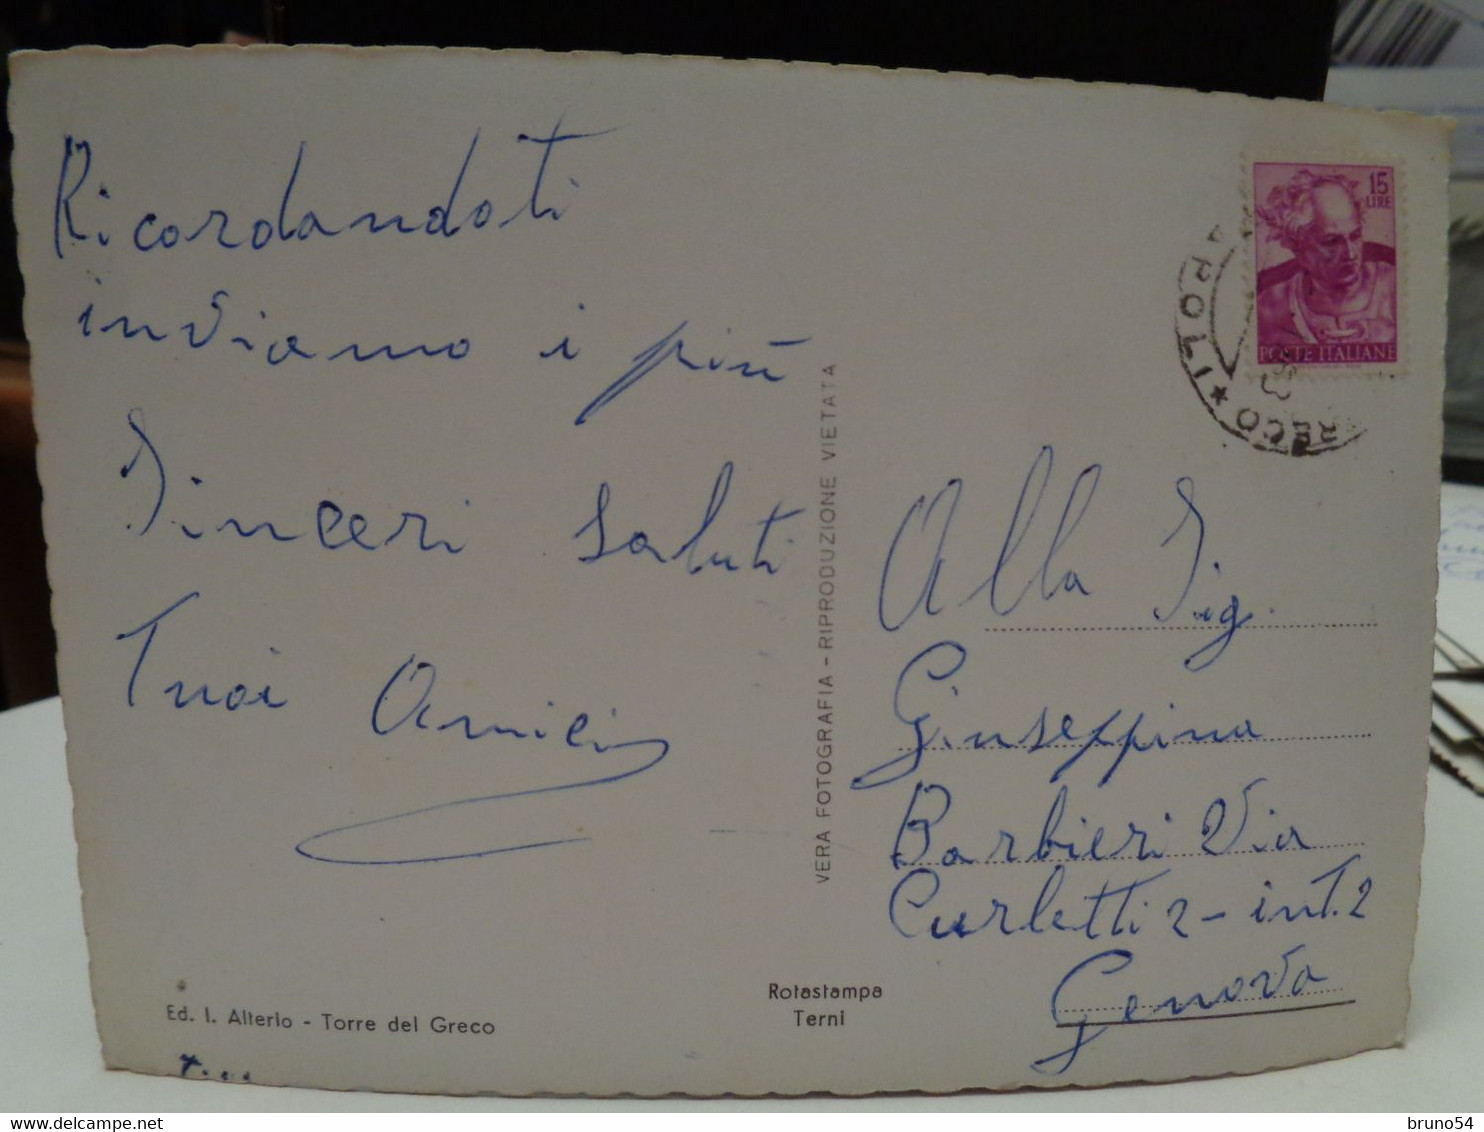 Ricordandoti
inviamo i più
Sinceri Saluti
Tuoi Amici
Ed. I. Alterio - Torre del Greco
VERA FOTOGRAFIA - RIPRODUZIONE VIETATA
Rotastampa
Terni
15
LIRE
POSTE ITALIANE
RECO * (
Alla Sig.
Giuseppina
Barbieri Via
Curletti 2 - int. 2
Genova
bruno54